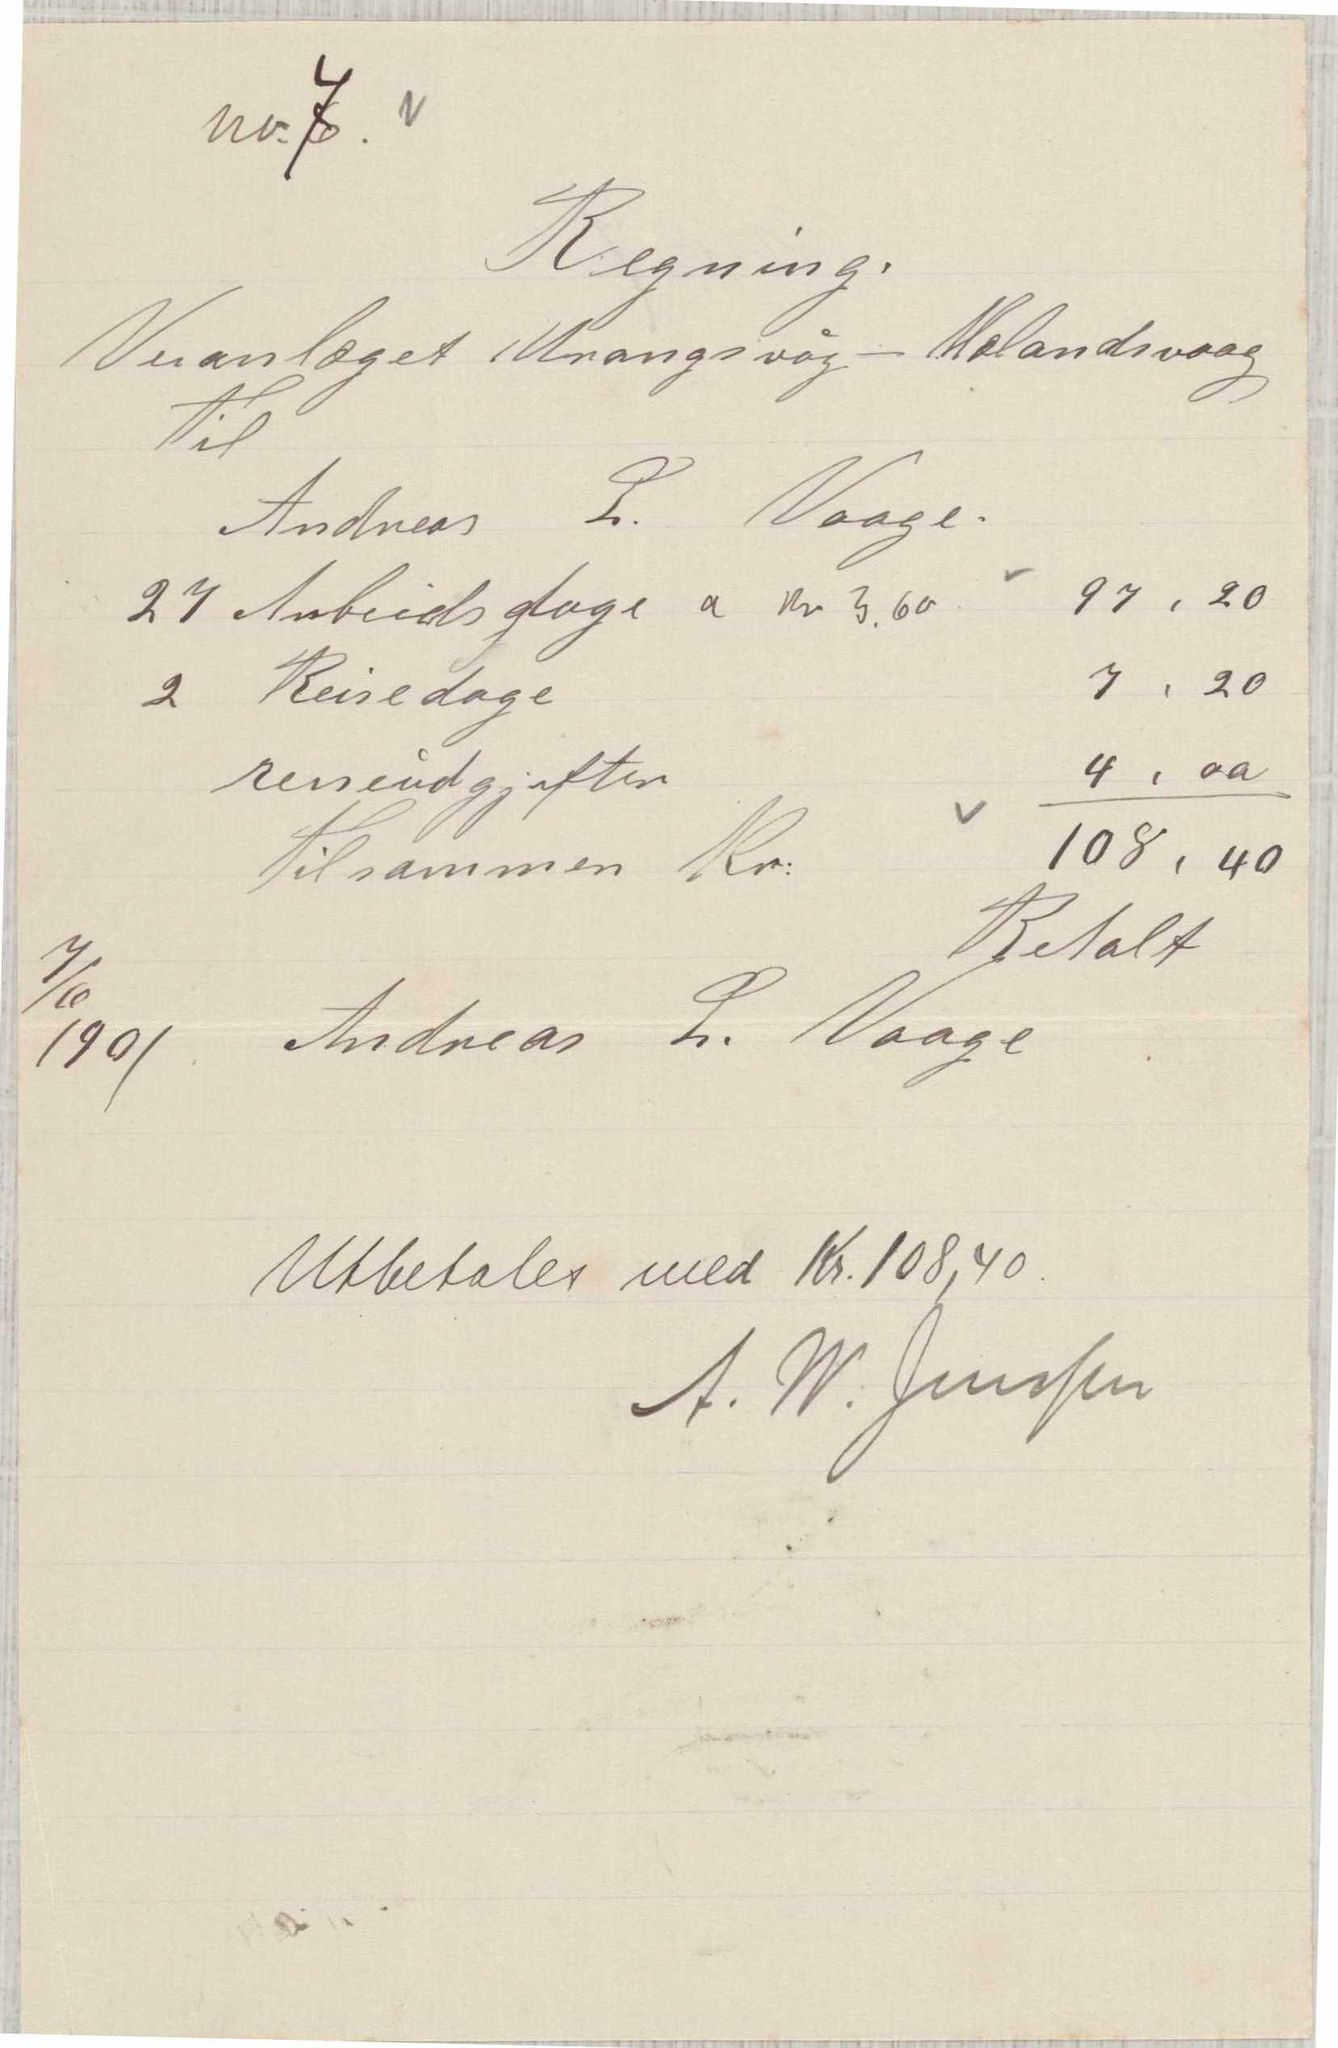 no. 7.
Regning.
Veianlæget Urangsvåg - Mælandsvaag
Til
Andreas L. Vaage.
27 Arbeidsdage a Kr 3,60 97,20
2 Reisedage 7,20
reiseudgifter 4,00
Tilsammen Kr: 108,40
Betalt
7/6
1901 Andreas L. Vaage
Utbetales med Kr. 108,40.
A. W. Jenssen